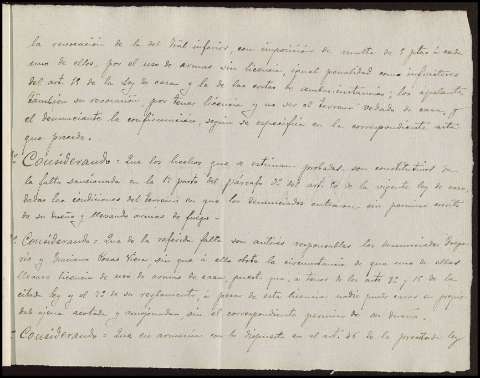 la revocación de la del Tral inferior, con imposición de multa de 5 ptas á cada
uno de ellos, por el uso de armas sin licencia, igual penalidad como infractores
del artº 1º de la Ley de caza y la de las costas en ambas instancias; los apelantes
también su revocación, por tener licencia y no ser el terreno vedado de caza, y
el denunciante la confirmación, según se especifica en la correspondiente acta
que precede.
Considerando = Que los hechos que se estiman probados, son constitutivos de
la falta sancionada en la 1ª parte del párrafo 3º del artº de la vigente ley de caza,
dadas las condiciones del terreno en que los denunciados entraron sin permiso escrito
de su dueño y llevando armas de fuego =
Considerando = Que de la referida falta son autores responsables los denunciados
y Mariano Casas sin que á ello obste la circunstancia de que uno de ellos
licencia de uso de armas de caza, puesto que, á tenor de los artos y de la
citada ley y el 2º de su reglamento, á pesar de esta licencia nadie puede cazar en propie-
dad ajena acotada y amojonada sin el correspondiente permiso de su dueño.
Considerando = Que en armonía con lo dispuesto en el artº 46 de la precitada ley